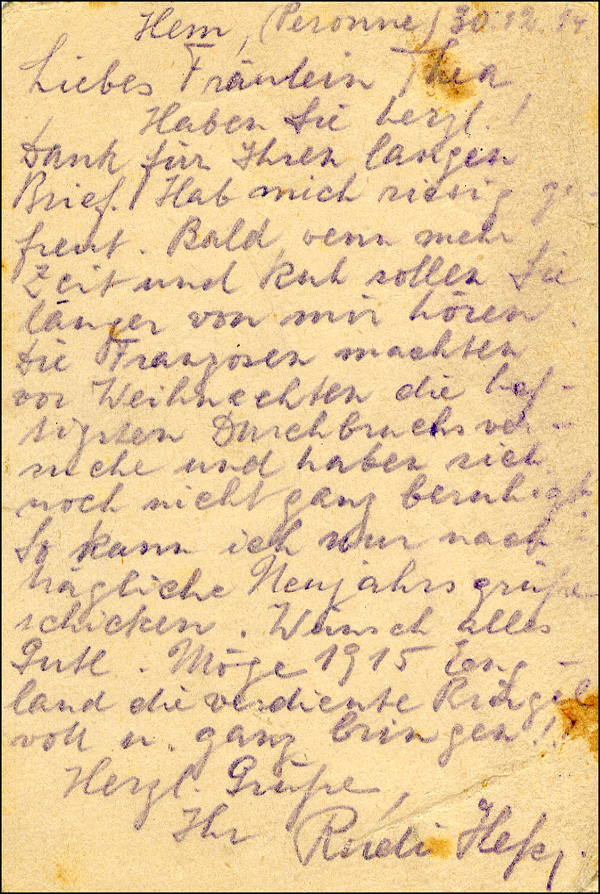 Hem, (Peronne) 30.12.14.
Liebes Fräulein Thea,
Haben Sie herzl.!
Dank für Ihren langen
Brief. Hab mich riesig ge-
freut. Bald, wenn mehr
Zeit und Ruh sollen Sie
länger von mir hören.
Die Franzosen machten
vor Weihnachten die hef-
tigsten Durchbruchsver-
suche und haben sich
noch nicht ganz beruhigt.
So kann ich nur nach-
trägliche Neujahrsgrüße
schicken. Wünsch alles
Gute. Möge 1915 Eng-
land die verdiente Prügel
voll u. ganz bringen!!
Herzl. Grüße,
Ihr Rudi